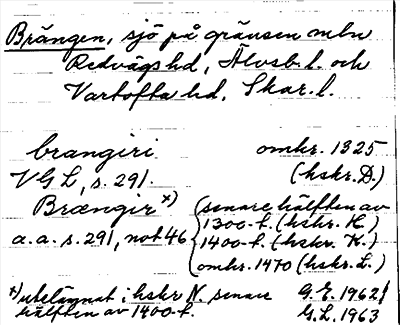 Brängen, sjö på gränsen mln
Redvägs hd, Älvsb. l. och
Vartofta hd, Skar. l.
brangiri omkr. 1325
VGL, s. 291. (hskr. D.)
Brængir x) senare hälften av
1300-t. (hskr. H.)
a.a. s. 291, not 46 1400-t. (hskr. K.)
omkr. 1470 (hskr. L.)
x) utelämnat i hskr N. senare G.E. 1962/
hälften av 1400-t. G.L. 1963